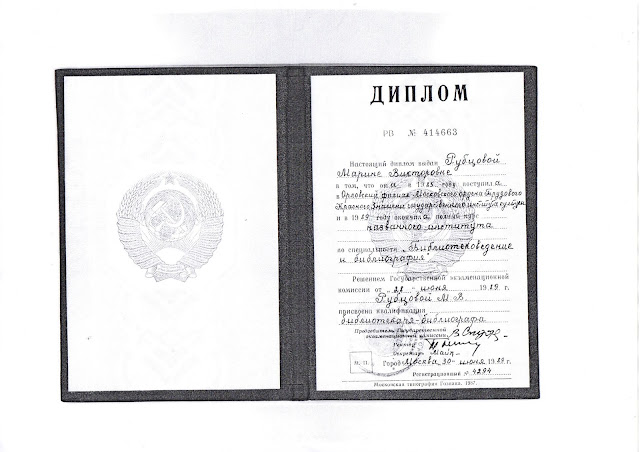 ДИПЛОМ
РВ № 414663
Настоящий диплом выдан Рубцовой
Марине Викторовне
в том, что она в 1985 году поступила
в Орловский филиал Московского ордена Трудового
Красного Знамени государственного института культуры
и в 1989 году окончила полный курс
названного института
по специальности „Библиотековедение
и библиография"
Решением Государственной экзаменационной
комиссии от „21" июня 1989 г.
Рубцовой М. В.
присвоена квалификация
библиотекаря-библиографа
Председатель Государственной
экзаменационной комиссии
Ректор
Секретарь
М. П. Город Москва, 30 июня 1989 г.
Регистрационный № 4294
Московская типография Гознака. 1987.